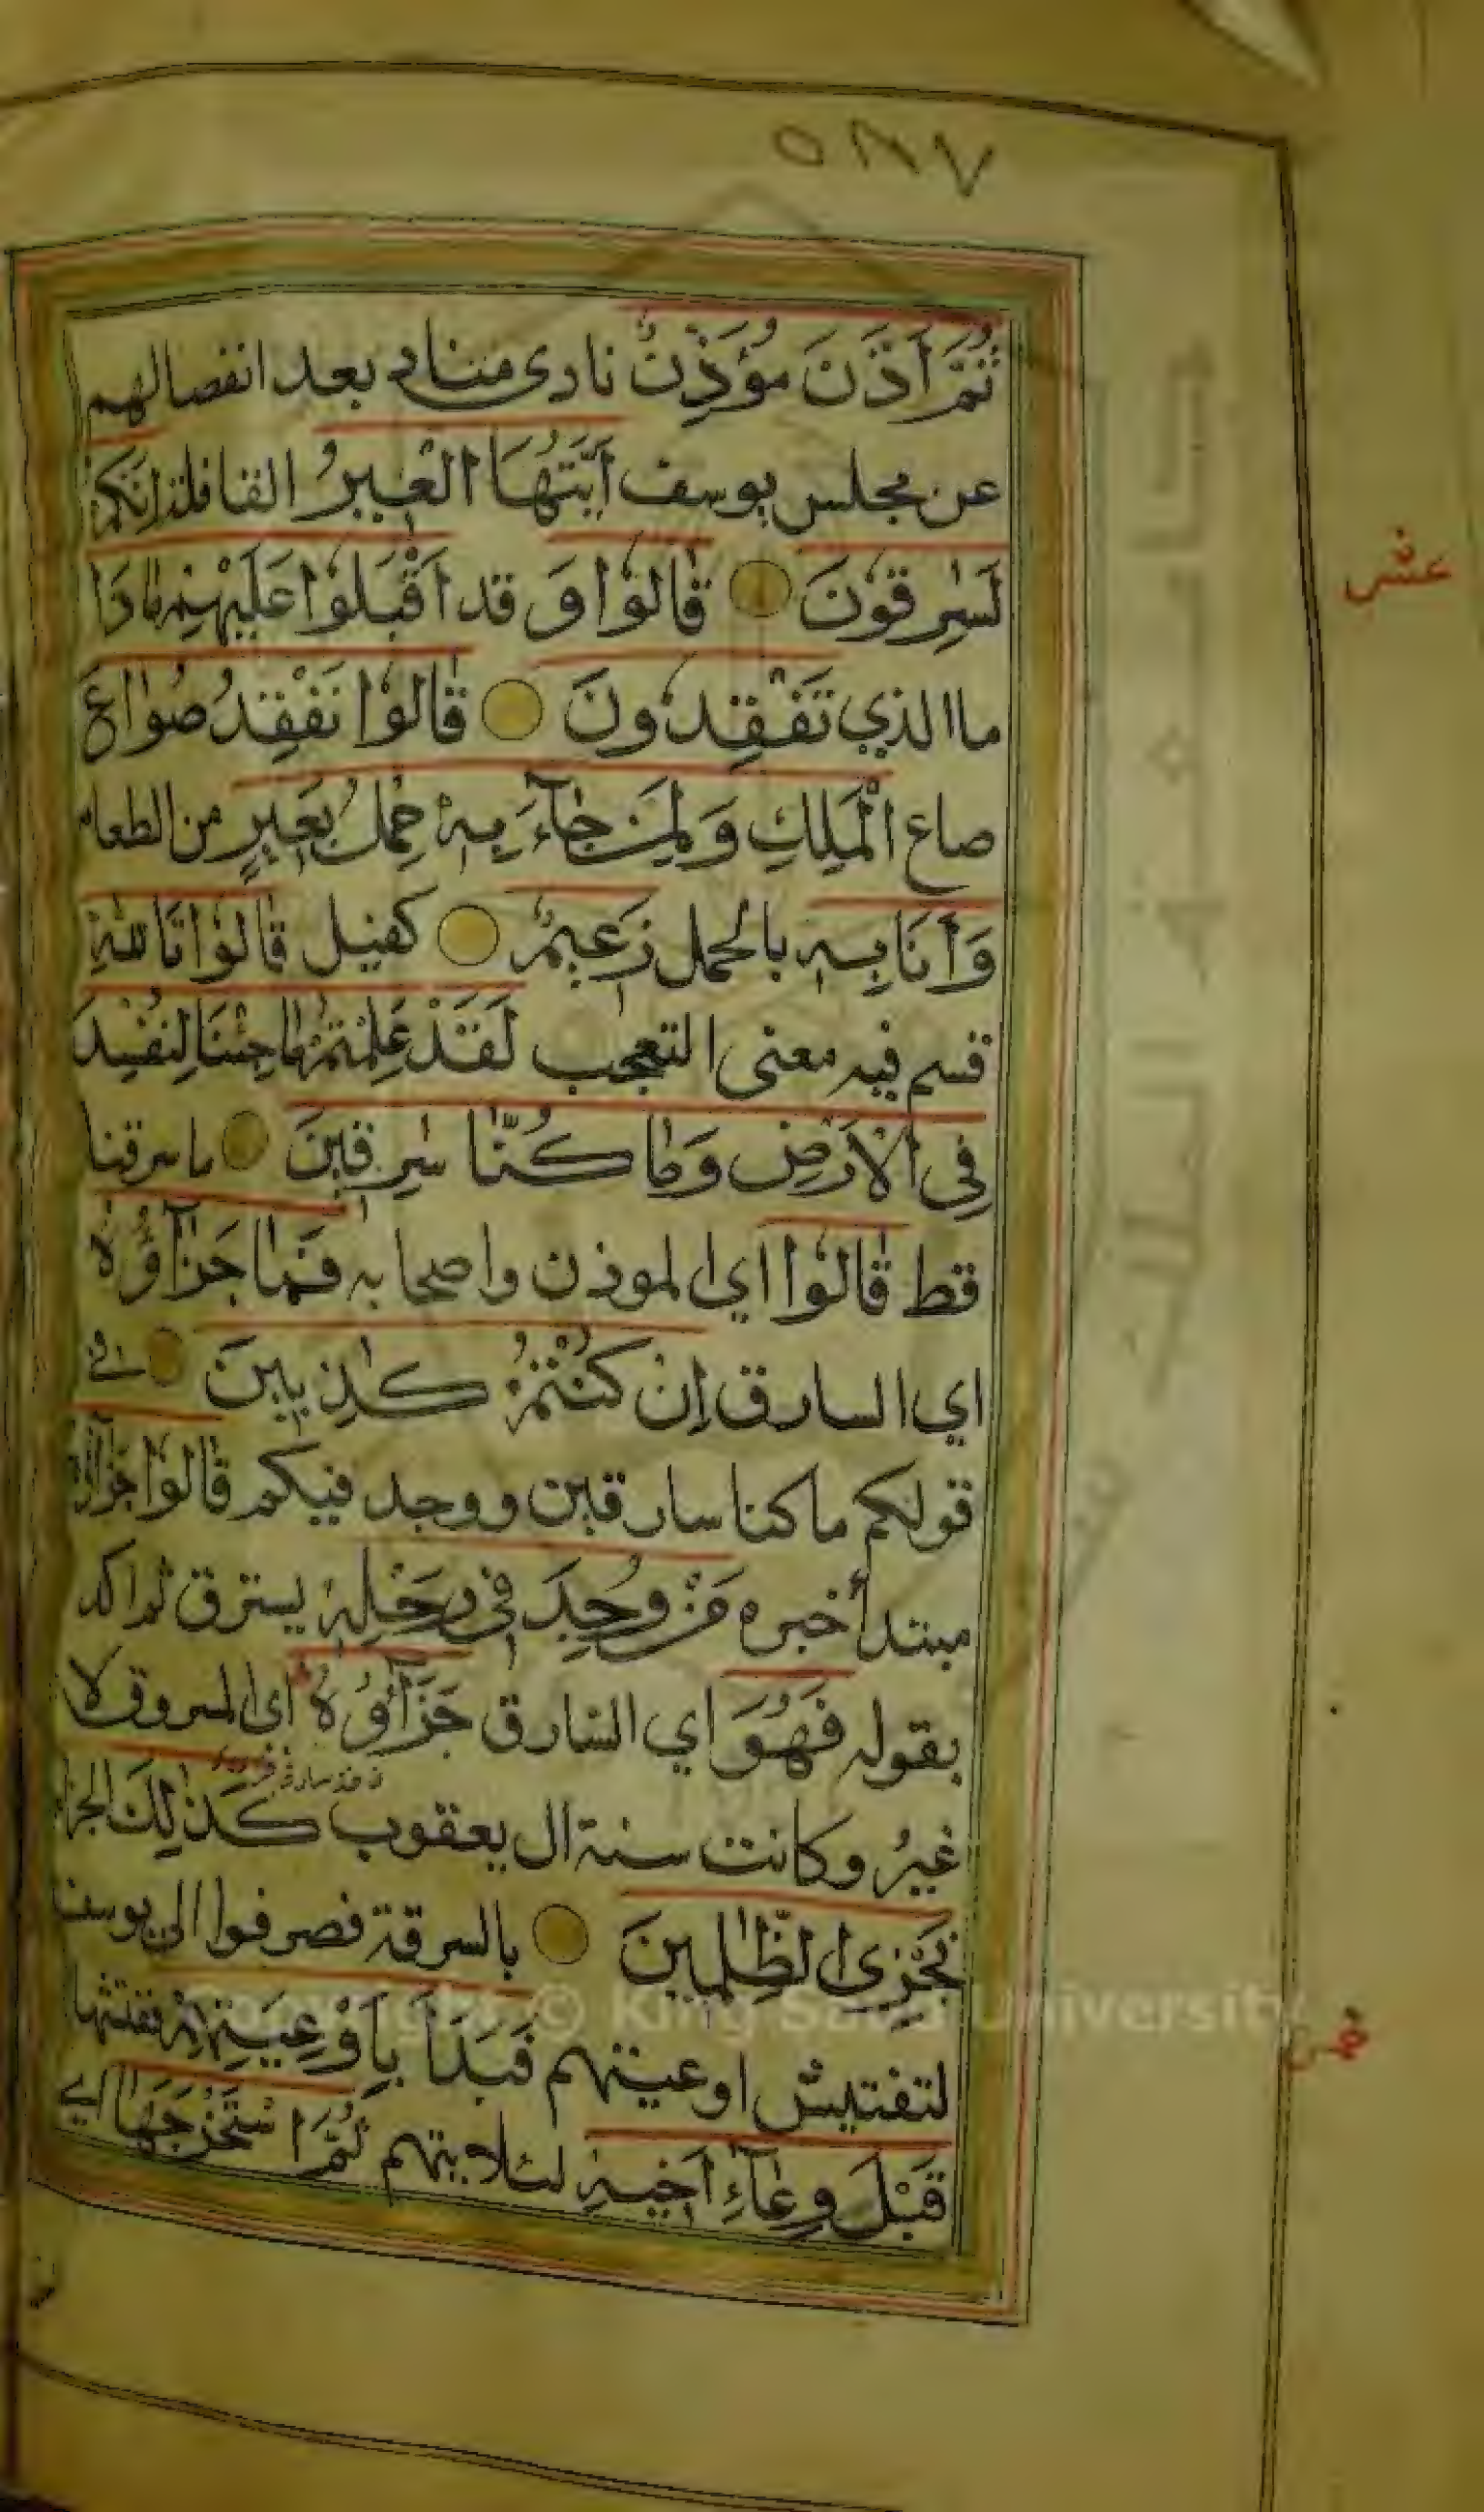 ٥٨٧
ثُمَّ أَذَّنَ مُؤَذِّنٌ نادى مناد بعد انفصالهم
عن مجلس يوسف أَيَّتُهَا الْعِيرُ القافلة إِنَّكُمْ
لَسٰرِقُونَ قَالُوْا وَ قد أَقْبَلُوْا عَلَيْهِمْ مَاذَا
عشر
ما الذي تَفْقِدُونَ قَالُوْا نَفْقِدُ صُوَاعَ
صاع الْمَلِكِ وَلِمَنْ جَآءَ بِهٖ حِمْلُ بَعِيرٍ من الطعام
وَأَنَا بِهٖ بالحمل زَعِيمٌ كفيل قَالُوْا تَاللّٰهِ
قسم فيه معنى التعجب لَقَدْ عَلِمْتُمْ مَا جِئْنَا لِنُفْسِدَ
فِى الْأَرْضِ وَمَا كُنَّا سٰرِقِينَ ما سرقنا
قط قَالُوْا اي الموذن واصحابه فَمَا جَزَآؤُهٗ
اي السارق إِنْ كُنْتُمْ كٰذِبِينَ في
قولكم ما كنا سارقين ووجد فيكم قَالُوْا جَزَآؤُهٗ
مبتدأ خبره مَنْ وُجِدَ فِى رَحْلِهٖ يسترق ثم اكد
بقوله فَهُوَ اي السارق جَزَآؤُهٗ اى المسروق لا
غيرُ وكانت سنة ال يعقوب كَذٰلِكَ الجزاء
نَجْزِى الظّٰلِمِينَ بالسرقة فصرفوا الى يوسف
لتفتيش اوعيتهم فَبَدَأَ بِأَوْعِيَتِهِمْ ففتشها
خمس
قَبْلَ وِعَآءِ أَخِيهِ لئلا يتهم ثُمَّ اسْتَخْرَجَهَا اي
Copyright © King Saud University